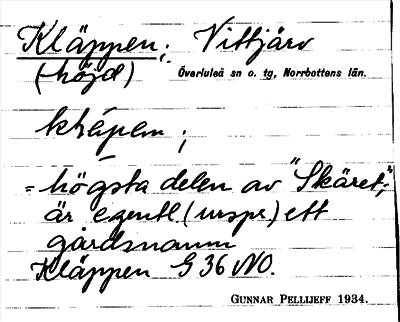 Kläppen; Vittjärv
(höjd) Överluleå sn o. tg, Norrbottens län.
kläpen;
= högsta delen av "Skäret;"
är egentl (urspr) ett
gårdsnamn
Kläppen G 36 NO.
GUNNAR PELLIJEFF 1934.